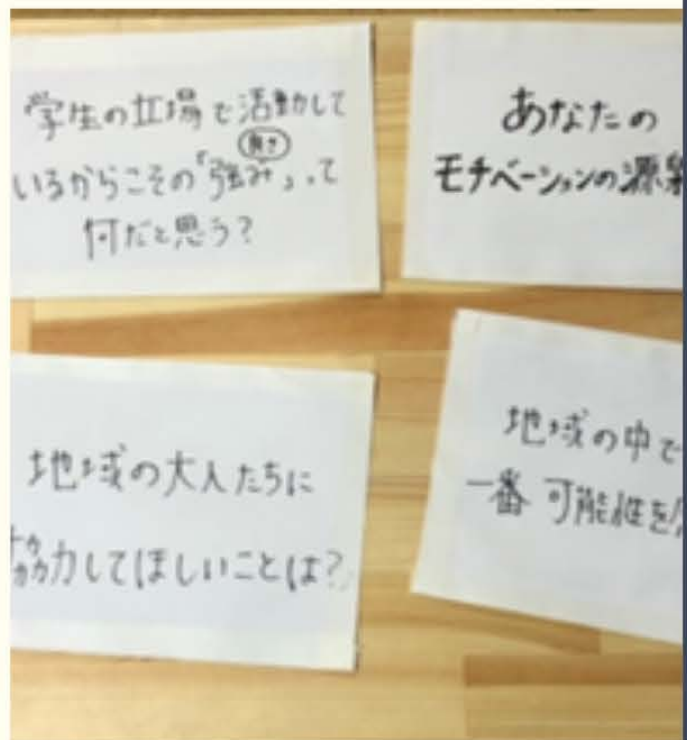 学生の立場で活動して
良さ
いるからこその「強み」って
何だと思う?
あなたの
モチベーションの源泉
地域の大人たちに
協力してほしいことは?
地域の中で
一番 可能性を